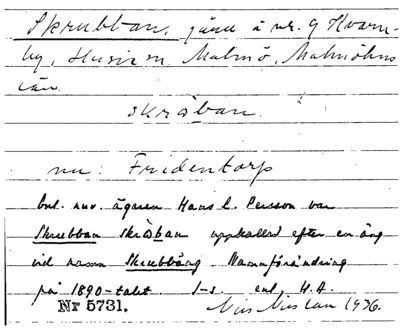 Skrubban, gård å nr. 9 Kvarn-
by, Husie sn. Malmö, Malmöhus
län.
skrɑ̀ban.
nu: Fridentorp
enl. nuv. ägaren Hans L. Persson var
Skrubban skrɑ̀ban uppkallad efter en äng
vid namn Skrubbäng. Namnförändring
på 1890-talet. 1-s enl. H.A.
Nr 5731.
1936.